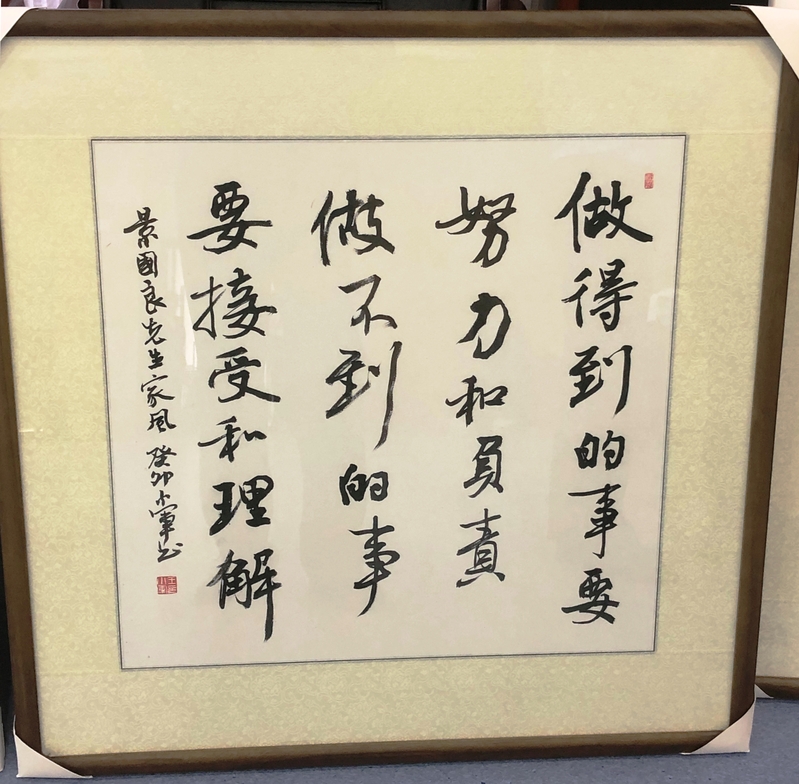 做得到的事要
努力和負責
做不到的事
要接受和理解
景國良先生家風 癸卯小軍书